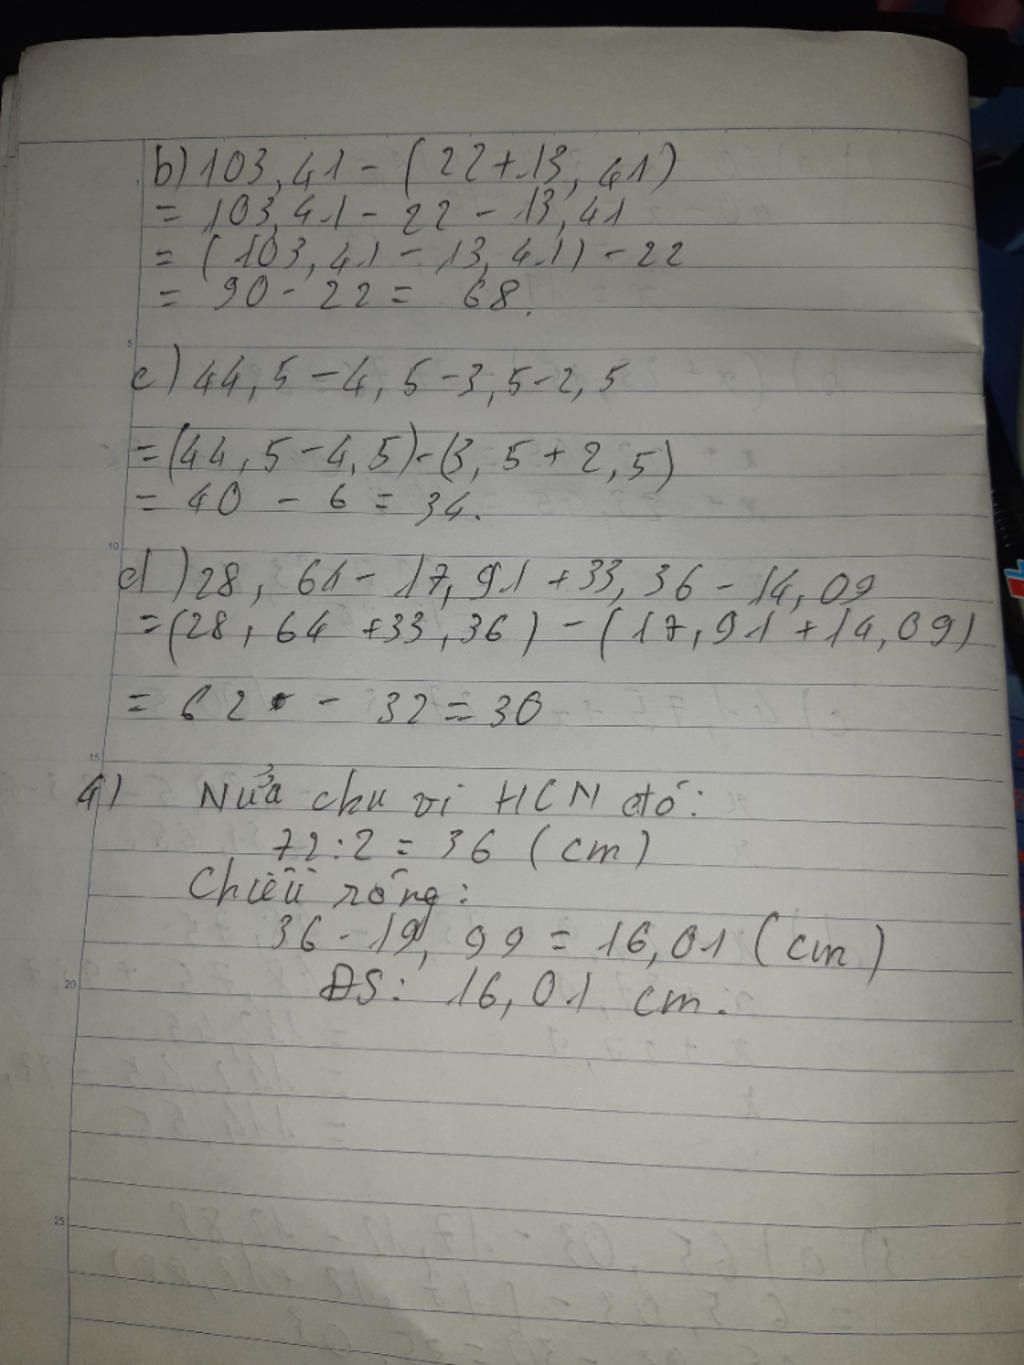 b) 103,41 - (22 + 13,41)
= 103,41 - 22 - 13,41
= (103,41 - 13,41) - 22
= 90 - 22 = 68.
5
c) 44,5 - 4,5 - 3,5 - 2,5
= (44,5 - 4,5) - (3,5 + 2,5)
= 40 - 6 = 34.
10
d) 28,64 - 17,91 + 33,36 - 14,09
= (28,64 + 33,36) - (17,91 + 14,09)
= 62 - 32 = 30
15
4) Nửa chu vi HCN đó:
72:2 = 36 (cm)
Chiều rộng:
36 - 19,99 = 16,01 (cm)
20
ĐS: 16,01 cm.
25